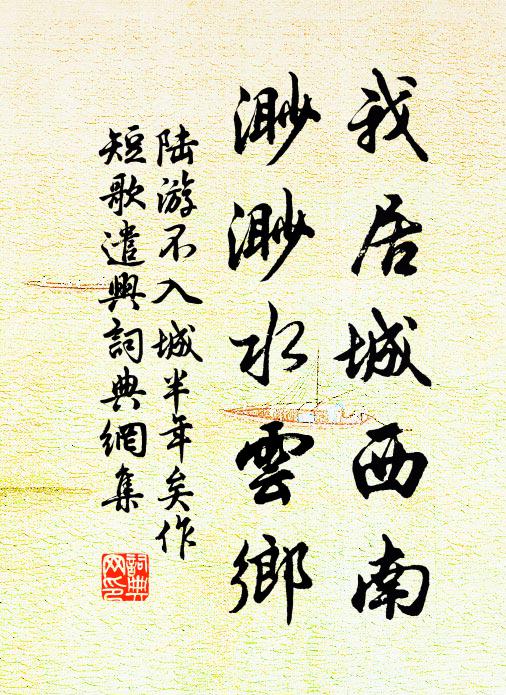 我居城西南
渺渺水雲鄉
陆游不入城半年矣作
短歌遣興詞典網集
詞典
网印